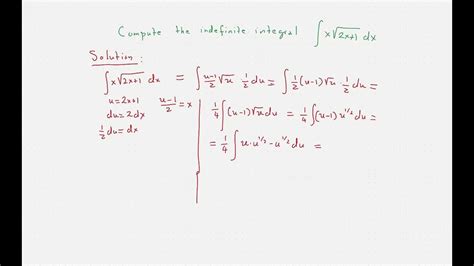 Compute the indefinite integral ∫x√(2x+1) dx
Solution :
∫x√(2x+1) dx = ∫(u-1)/2 √u 1/2 du = ∫1/2 (u-1)√u · 1/2 du =
u=2x+1 (u-1)/2 = x
du=2dx
1/2 du=dx
1/4 ∫(u-1)√u du = 1/4 ∫(u-1) u^1/2 du =
= 1/4 ∫u·u^1/2 - u^1/2 du =